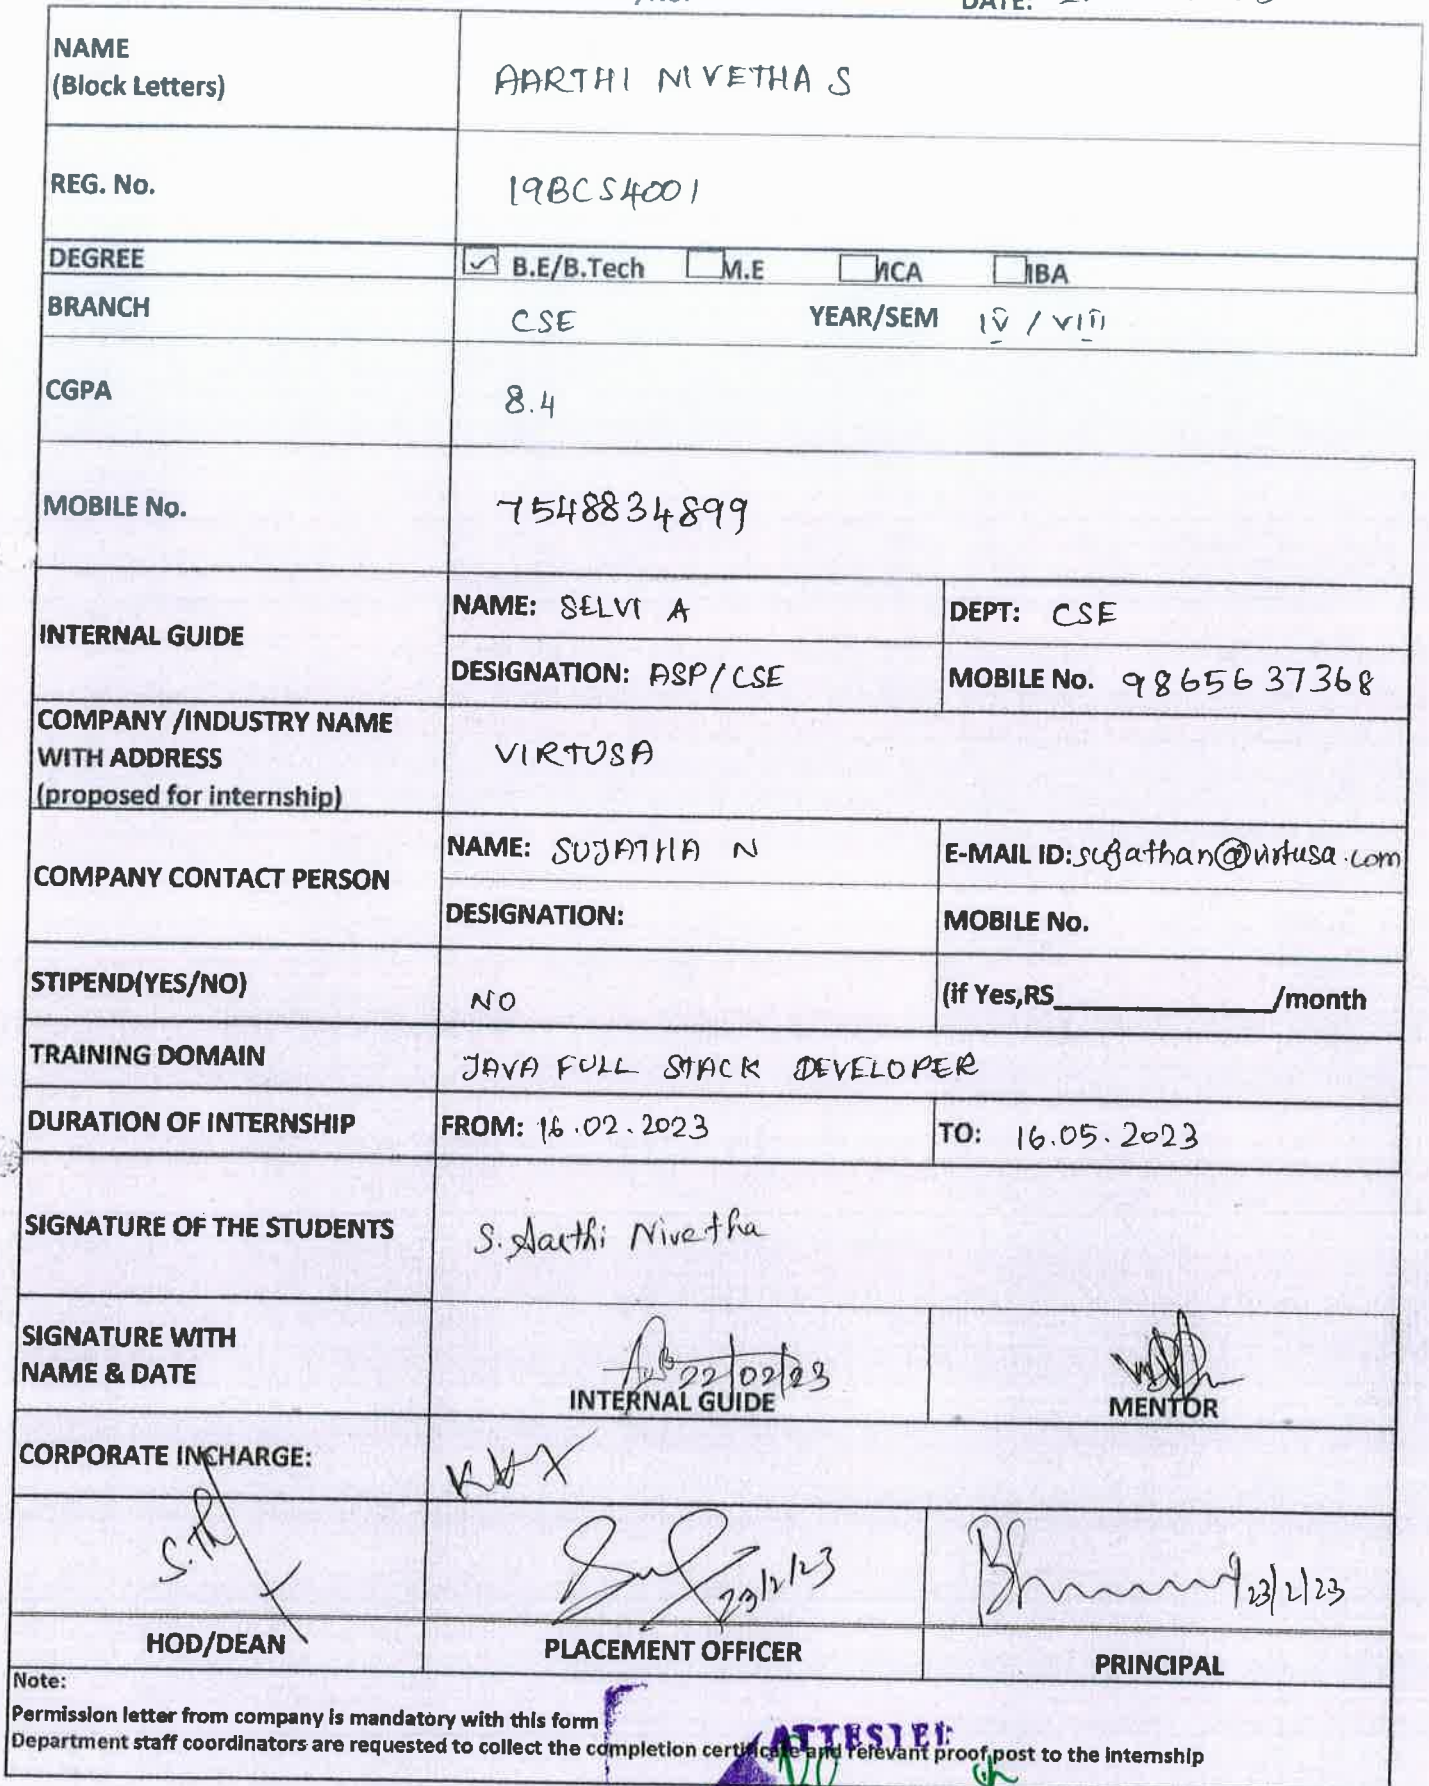 DATE:
NAME
(Block Letters)
AARTHI NIVETHA S
REG. No.
19BCS4001
DEGREE
B.E/B.Tech M.E MCA MBA
BRANCH
CSE YEAR/SEM IV / VIII
CGPA
8.4
MOBILE No.
7548834899
INTERNAL GUIDE
NAME: SELVI A
DEPT: CSE
DESIGNATION: ASP/CSE
MOBILE No. 9865637368
COMPANY /INDUSTRY NAME
WITH ADDRESS
(proposed for internship)
VIRTUSA
COMPANY CONTACT PERSON
NAME: SUJATHA N
E-MAIL ID: sujathan@virtusa.com
DESIGNATION:
MOBILE No.
STIPEND(YES/NO)
NO
(if Yes,RS /month
TRAINING DOMAIN
JAVA FULL STACK DEVELOPER
DURATION OF INTERNSHIP
FROM: 16.02.2023
TO: 16.05.2023
SIGNATURE OF THE STUDENTS
S. Aarthi Nivetha
SIGNATURE WITH
NAME & DATE
22/02/23
INTERNAL GUIDE
MENTOR
CORPORATE INCHARGE:
23/2/23
23/2/23
HOD/DEAN
PLACEMENT OFFICER
PRINCIPAL
Note:
Permission letter from company is mandatory with this form
ATTESTED
Department staff coordinators are requested to collect the completion certificate and relevant proof post to the internship